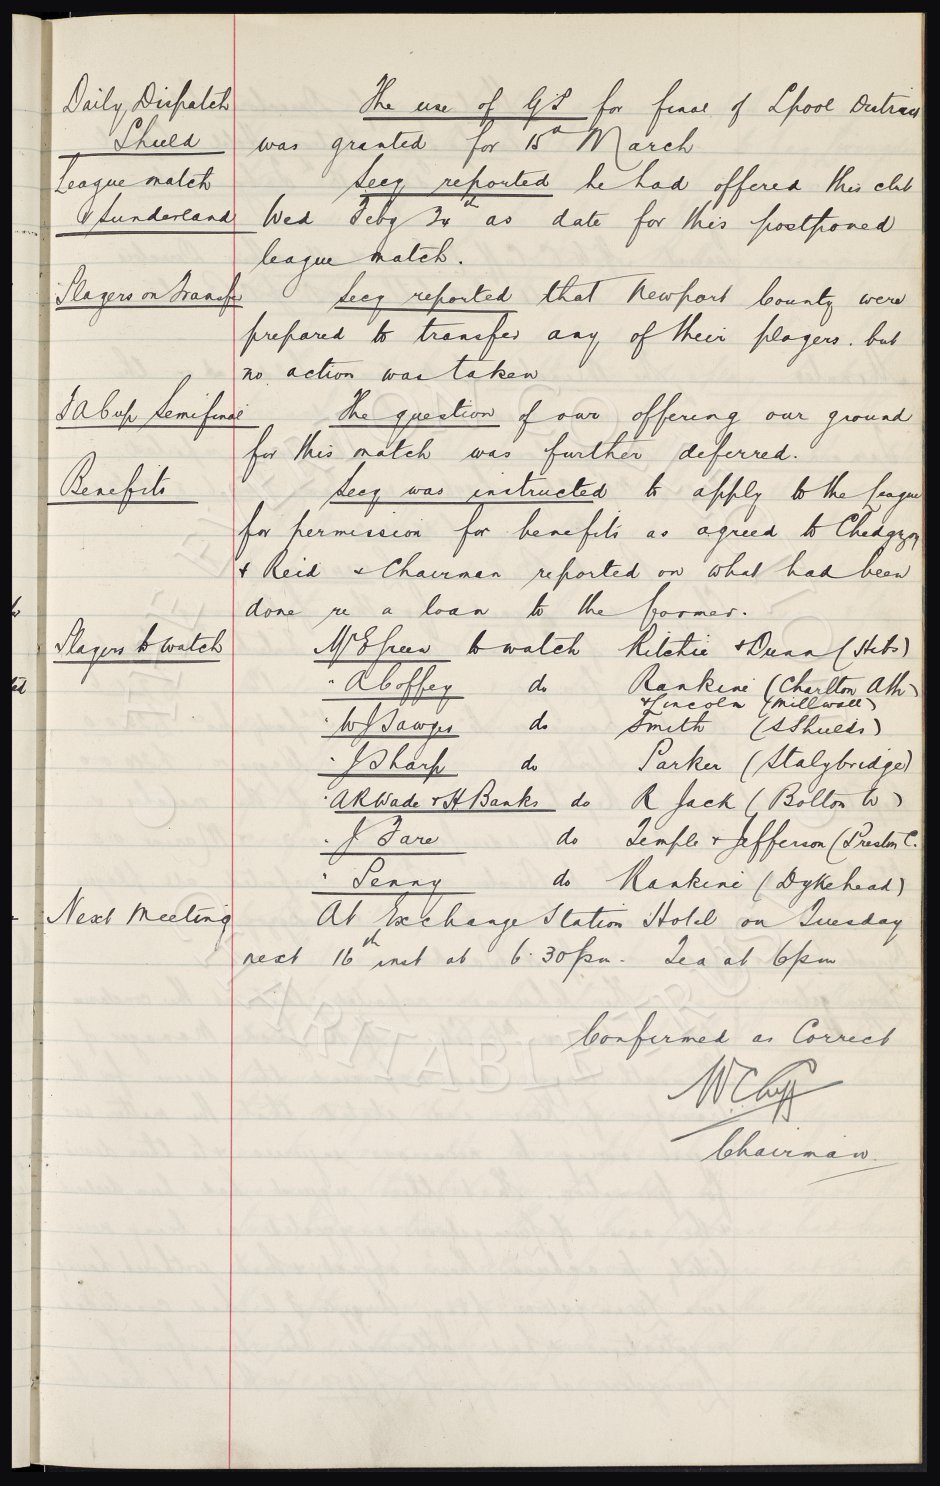 Daily Dispatch The use of G.P. for final of Lpool District
Shield was granted for 15th March
League match Secy reported he had offered this club
v Sunderland Wed Feby 24th as date for this postponed
league match.
Players on Transfer Secy reported that Newport County were
prepared to transfer any of their players. but
no action was taken
FA Cup Semifinal The question of our offering our ground
for this match was further deferred.
Benefits Secy was instructed to apply to the League
for permission for benefits as agreed to Chedgzoy
& Reid & Chairman reported on what had been
done re a loan to the former.
Players to watch Mr E Green to watch Ritchie & Dunn (Hibs)
" A Coffey do Rankine (Charlton Ath)
& Lincoln (Millwall)
" W J Sawyer do Smith (S Shields)
" J Sharp do Parker (Stalybridge)
" A R Wade & H Banks do R Jack (Bolton W)
" J Fare do Temple & Jefferson (Preston C.
" Penny do Rankine (Dykehead)
Next Meeting At Exchange Station Hotel on Tuesday
next 16th inst at 6.30pm. Tea at 6pm
Confirmed as Correct
W.C. Cuff
Chairman
CHARITABLE TRUST